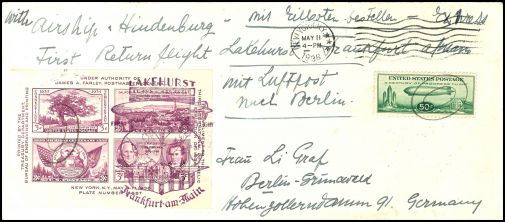 with Airship "Hindenburg" - mit Eilboten bestellen - Express
First Return flight Lakehurst - Frankfurt a/Main
NEW YORK, N.Y.
MAY 11
4-PM
1936
mit Luftpost
nach Berlin.
UNDER AUTHORITY OF
JAMES A. FARLEY, POSTMASTER
LAKEHURST
TREASURY DEPARTMENT
BUREAU OF ENGRAVING
3¢
3¢
NEW YORK, N.Y., MAY
PLATE NUMBER
Frankfurt-am-Main
UNITED STATES POSTAGE
A CENTURY OF PROGRESS FLIGHT
50¢
Frau Li Graf
Berlin-Grunewald
Hohenzollerndamm 91. Germany